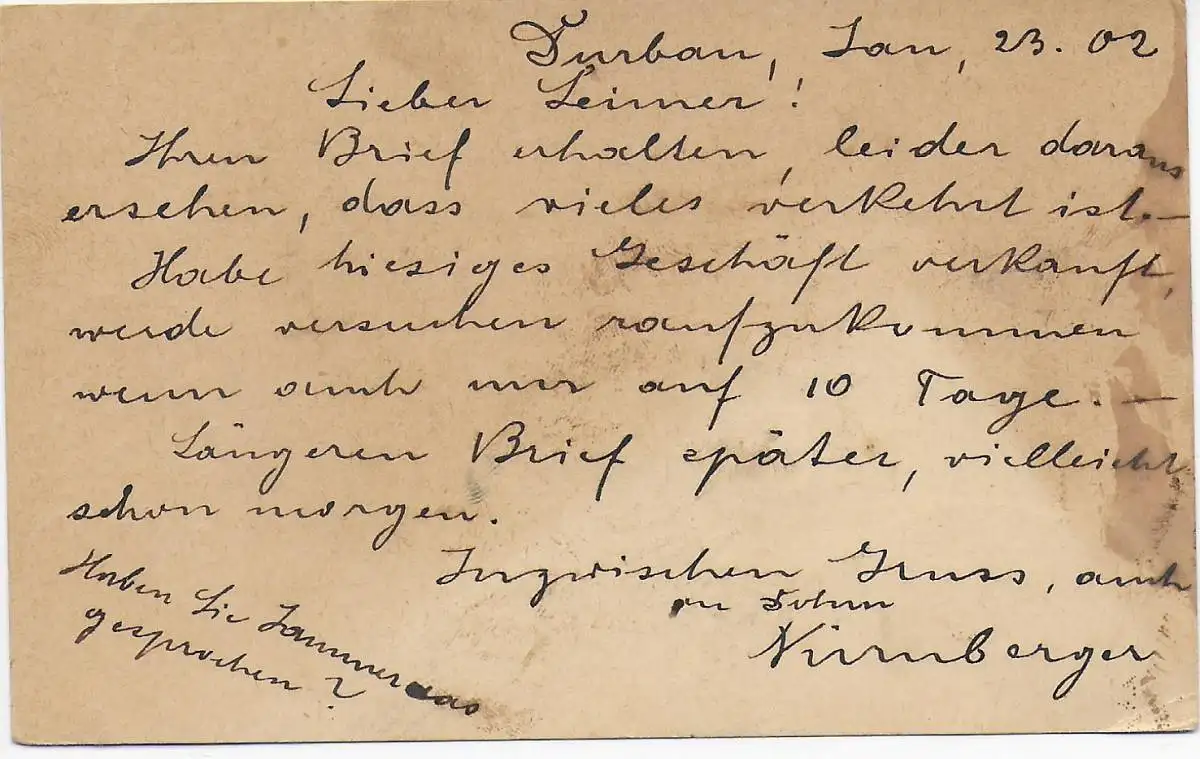 Durban, Jan, 23. 02
Lieber Leimer!
Ihren Brief erhalten, leider daraus
ersehen, dass vieles verkehrt ist. —
Habe hiesiges Geschäft verkauft,
werde versuchen raufzukommen
wenn auch nur auf 10 Tage. —
Längeren Brief später, vielleicht
schon morgen.
Inzwischen Gruss, auch
an
Nürnberger
Haben Sie
gesprochen?